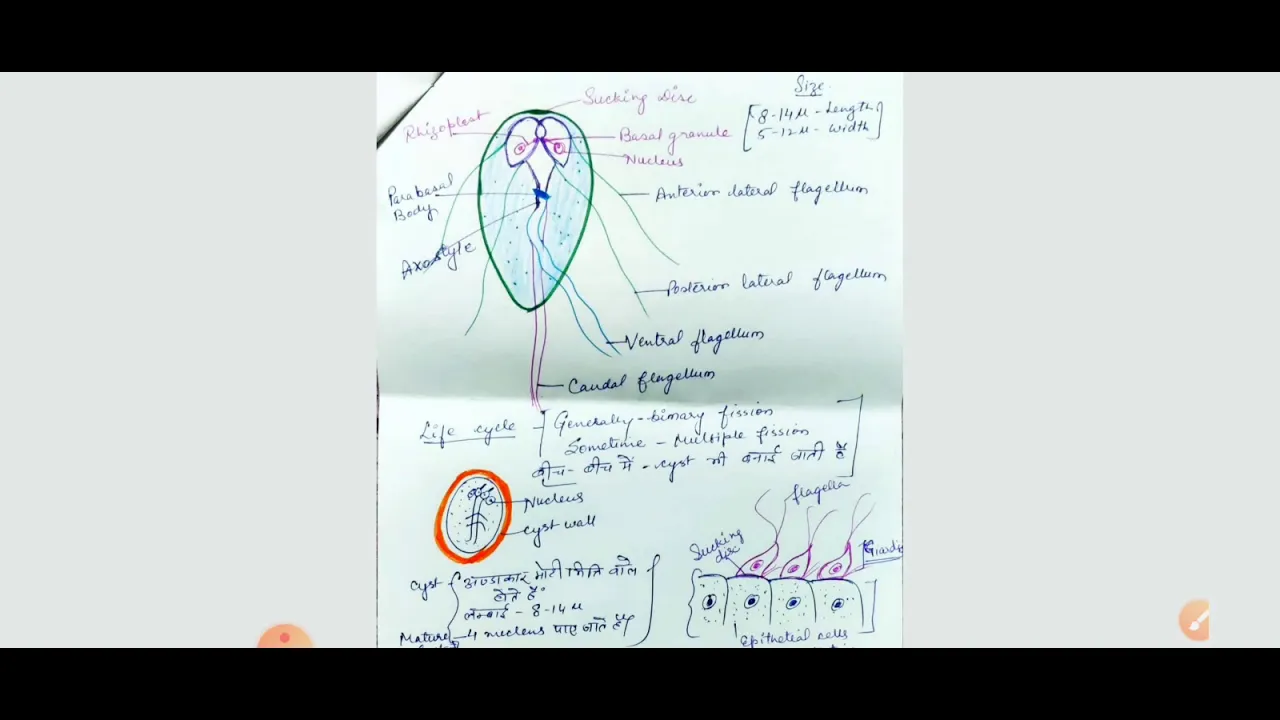 Sucking Disc
Size
8-14µ - Length
5-12µ - width
Rhizoplast
Basal granule
Nucleus
Parabasal
Body
Anterior lateral flagellum
Axostyle
Posterior lateral flagellum
Ventral flagellum
Caudal flagellum
Life cycle - Generally - binary fission
Sometime - Multiple fission
बीच - बीच में - cyst भी बनाई जाती है
Nucleus
Cyst wall
flagella
Sucking
disc
Cyst अण्डाकार मोटी भित्ति वाले
होते हैं
लम्बाई - 8-14µ
Mature - 4 nucleus पाए जाते हैं
Epithelial cells